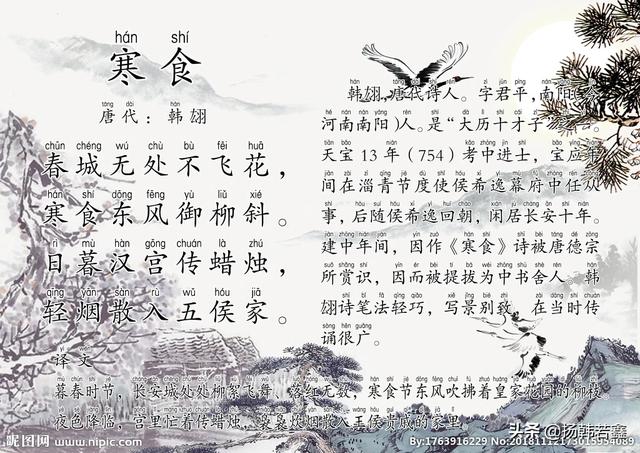 hán shí
寒食
táng dài hán
唐代：韩翃
chūn chéng wú chù bù fēi huā
春城无处不飞花，
hán shí dōng fēng yù liǔ xié
寒食东风御柳斜。
rì mù hàn gōng chuán là zhú
日暮汉宫传蜡烛，
qīng yān sàn rù wǔ hóu jiā
轻烟散入五侯家。
韩翃，唐代诗人。字君平，南阳（今
河南南阳）人。是“大历十才子”之一。
天宝13年（754）考中进士，宝应年
间在淄青节度使侯希逸幕府中任从
事，后随侯希逸回朝，闲居长安十年。
建中年间，因作《寒食》诗被唐德宗
所赏识，因而被提拔为中书舍人。韩
翃诗笔法轻巧，写景别致，在当时传
sòng hěn guǎng
诵很广。
译文
暮春时节，长安城处处柳絮飞舞、落红无数，寒食节东风吹拂着皇家花园的柳枝。
夜色降临，宫里忙着传蜡烛，袅袅炊烟散入王侯贵戚的家里。
昵图网 www.nipic.com
头条@杨韩若鑫